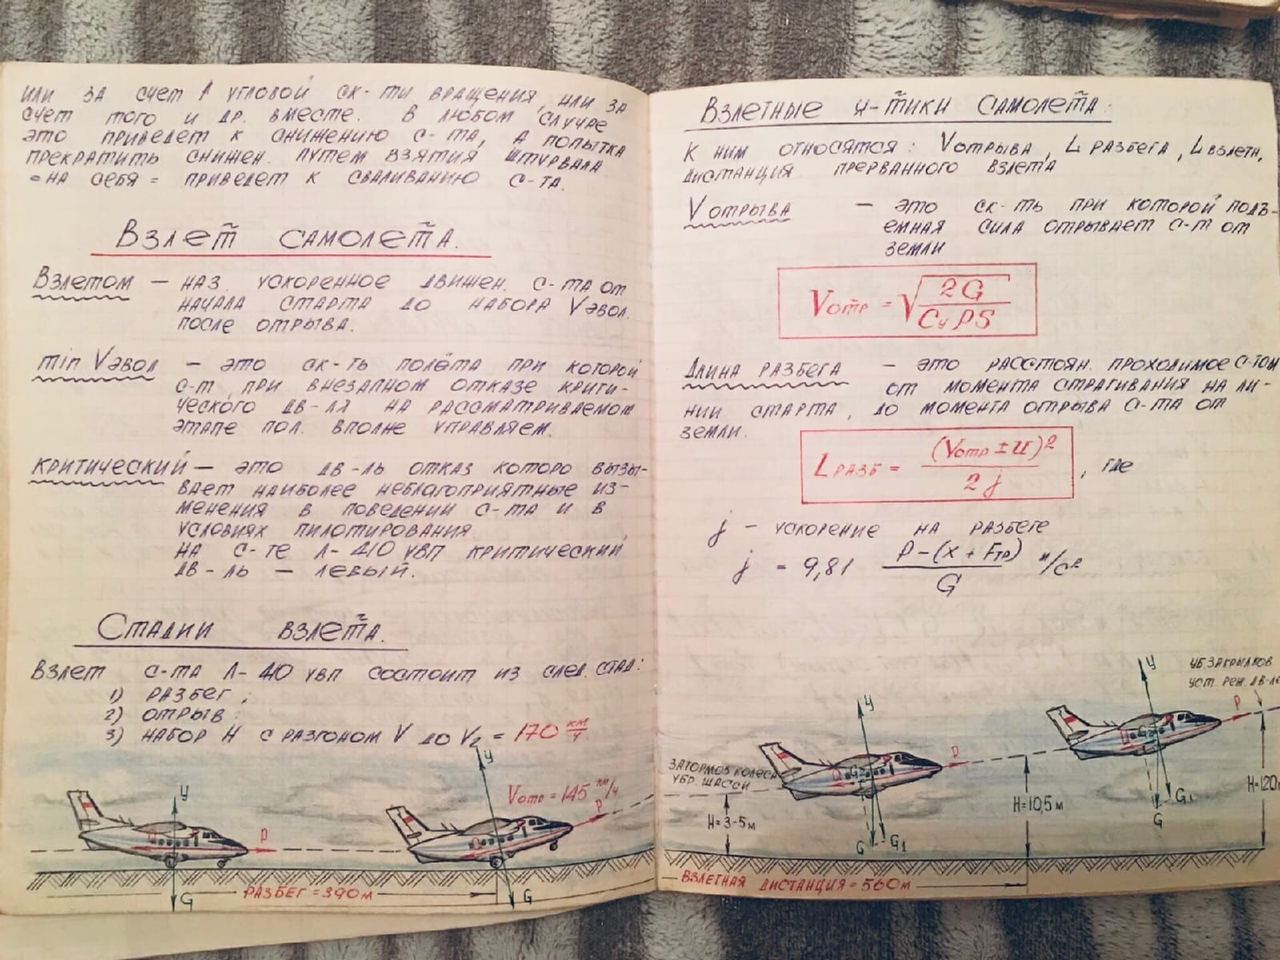 или за счет ↑ угловой ск-ти вращения, или за
счет того и др. вместе. В любом случае
это приведет к снижению с-та, а попытка
прекратить снижен. путем взятия штурвала
"на себя" приведет к сваливанию с-та.
Взлет самолета.
Взлетом — наз. ускоренное движен. с-та от
начала старта до набора Vэвол.
после отрыва.
min Vэвол — это ск-ть полёта при которой
с-т при внезапном отказе крити-
ческого дв-ля на рассматриваемом
этапе пол. вполне управляем.
Критический — это дв-ль отказ которо вызы-
вает наиболее неблагоприятные из-
менения в поведении с-та и в
условиях пилотирования.
На с-те Л-410 увп критический
дв-ль — левый.
Стадии взлета.
Взлет с-та Л-410 увп состоит из след. стад:
1) разбег;
2) отрыв.
3) набор H с разгоном V до V₂ = 170 км/ч
Vотр = 145 км/ч
У
Р
G
У
Р
G
Разбег = 390 м
Взлетные х-тики самолета.
К ним относятся: Vотрыва, L разбега, L взлетн,
дистанция прерванного взлета
V отрыва — это ск-ть при которой подъ-
емная сила отрывает с-т от
земли
Vотр = √(2G / Cу ρS)
Длина разбега — это расстоян. проходимое с-том
от момента страгивания на ли-
нии старта, до момента отрыва с-та от
земли.
L разб = (Vотр ± U)² / 2j , где
j — ускорение на разбеге
j = 9,81 (P − (x + Fтр)) / G м/с²
уб закрылков
уст. реж. дв-ле
У
Р
G₁
G
У
Р
G
G₁
Затормоз колеса
убр. шасси
H = 3-5 м
H = 10,5 м
H = 120
Взлетная дистанция = 560 м